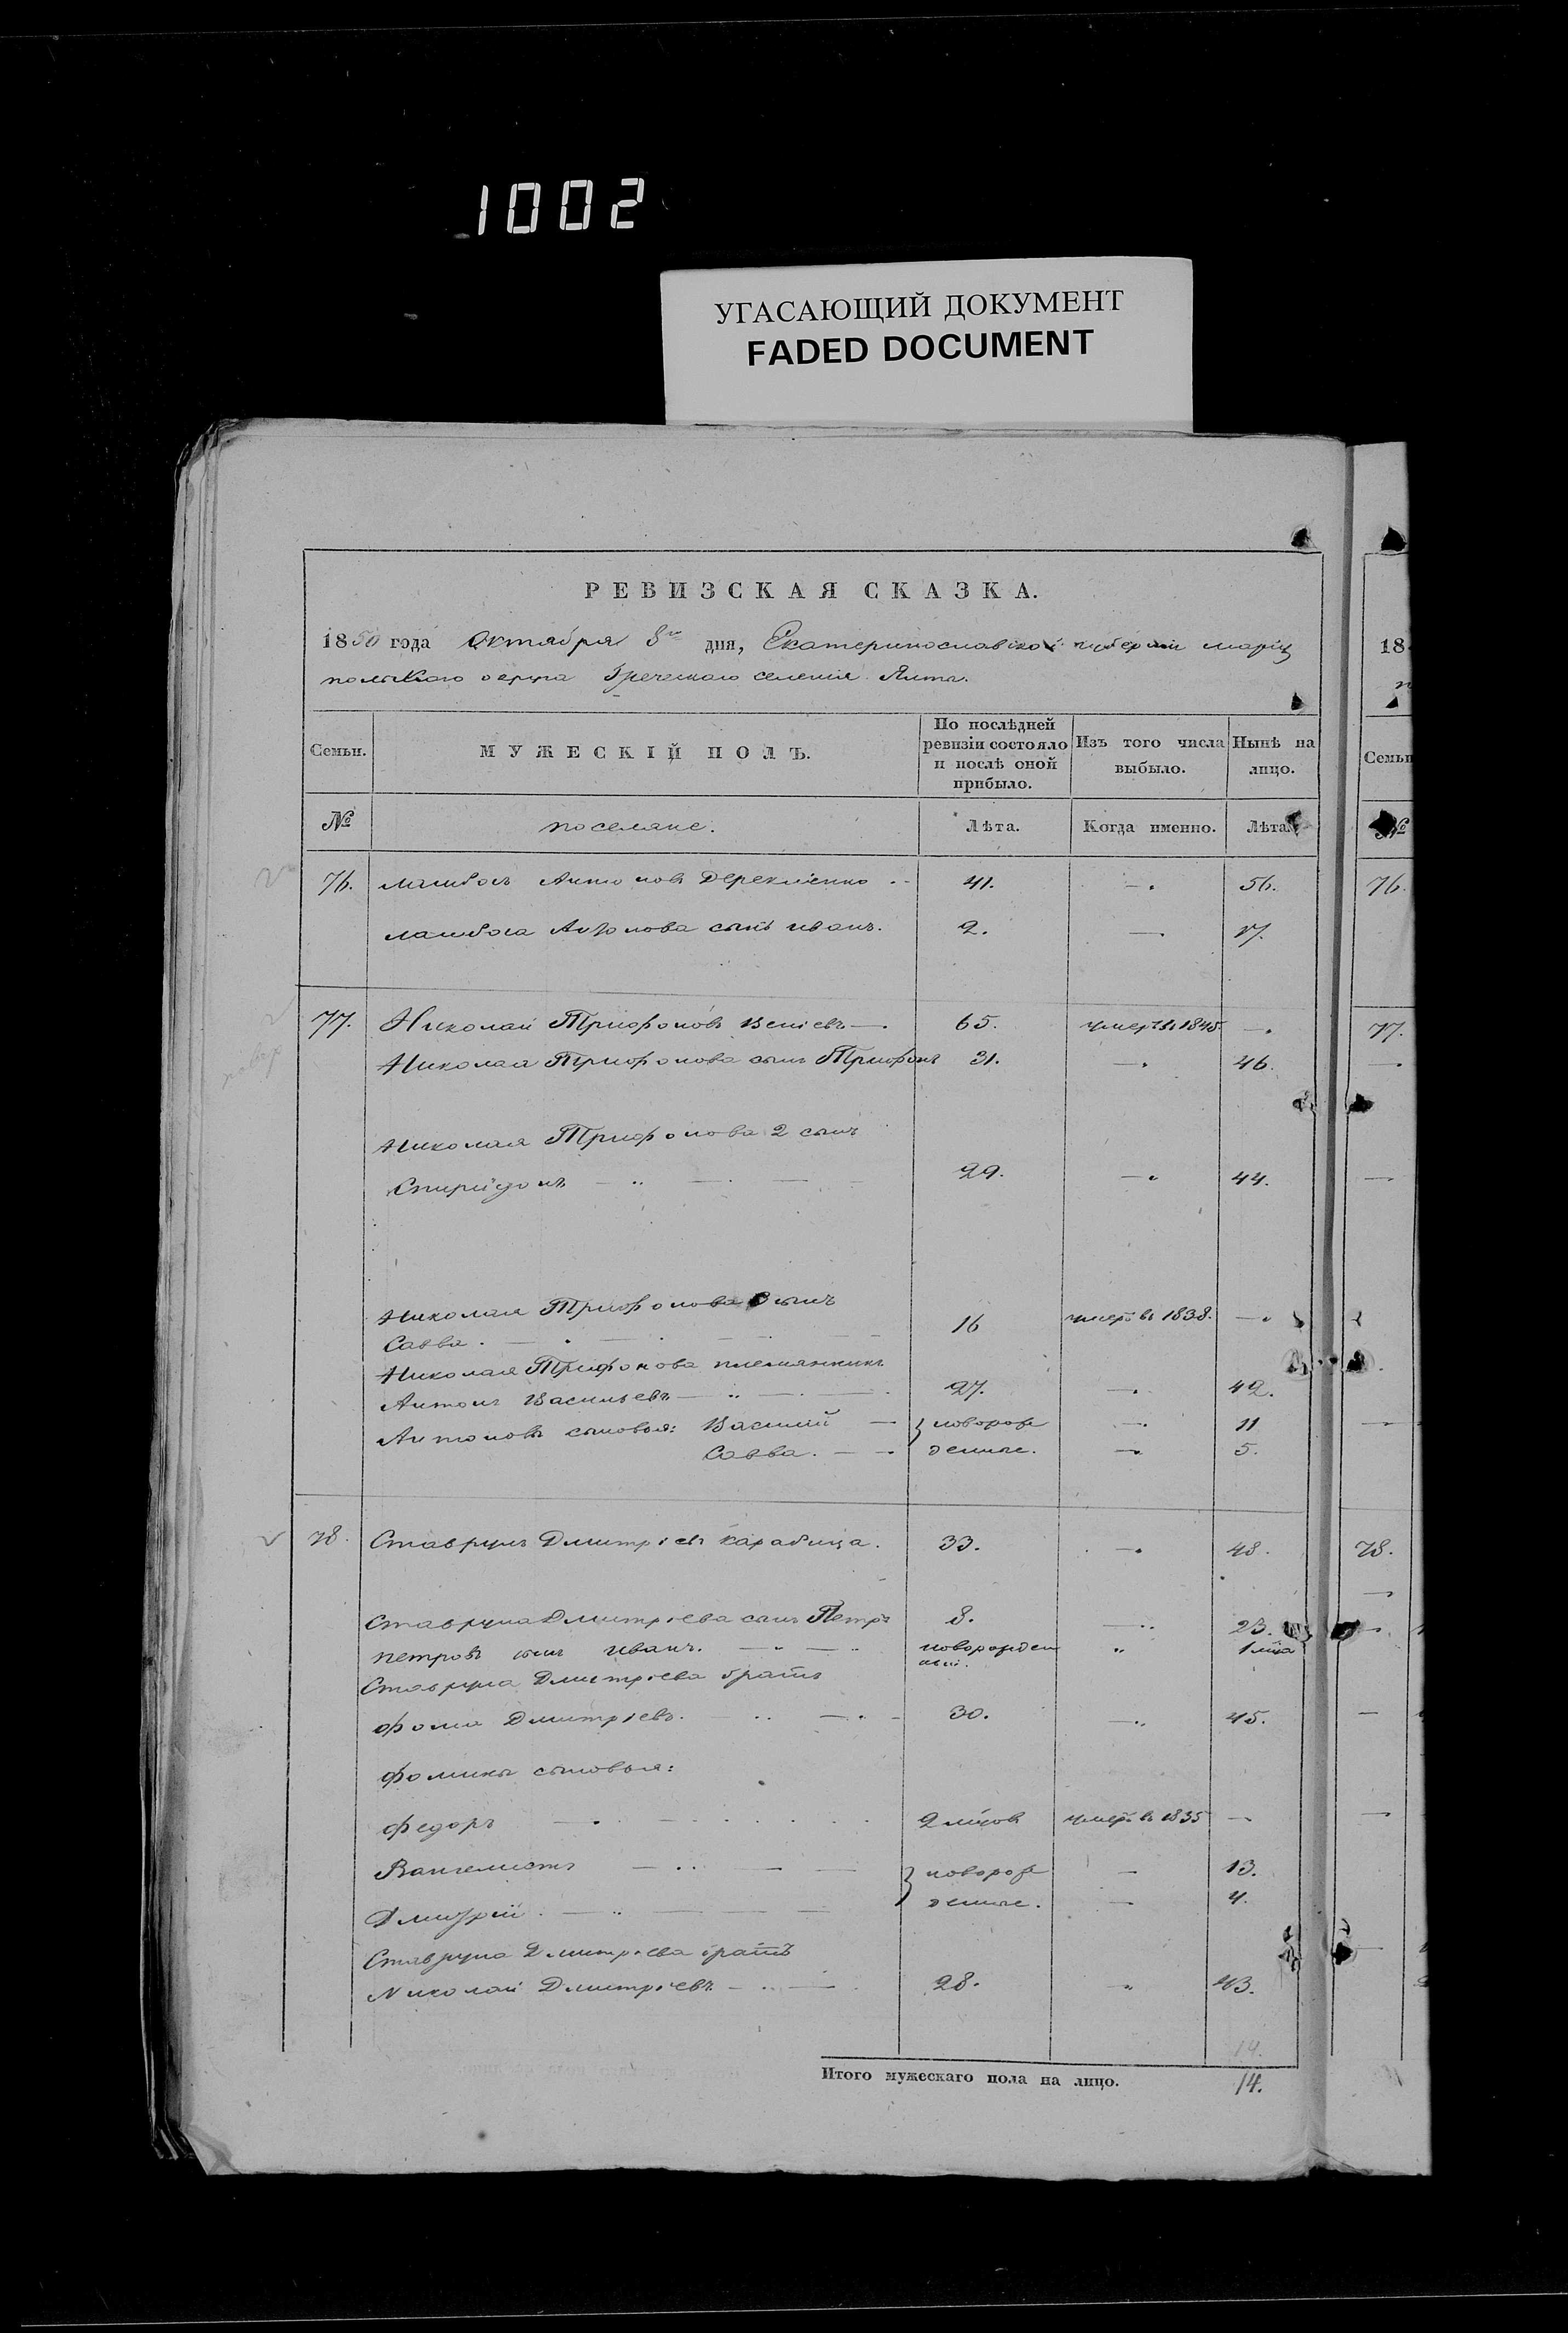 1002
УГАСАЮЩИЙ ДОКУМЕНТ
FADED DOCUMENT
РЕВИЗСКАЯ СКАЗКА.
1850 года Октября 8го дня, Екатеринославской губернии маріу
польскаго округа Греческаго селенія Ялты.
Семьи. МУЖЕСКІЙ ПОЛЪ. По послѣдней ревизіи состояло и послѣ оной прибыло. Изъ того числа выбыло. Нынѣ на лицо.
№ поселяне. Лѣта. Когда именно. Лѣта.
76. Антоновъ 41. — 56.
Антонова сынъ иванъ. 2. — 17.
77. Николай Трифоновъ — 65. умеръ въ 1845 —
Николая Трифонова сынъ Трифонъ 31. — 46.
Николая Трифонова 2 сынъ
Спиридонъ — 29. — 44.
Николая Трифонова 3 сынъ
Савва. — 16 умеръ въ 1838. —
Николая Трифонова племянникъ
Антонъ Васильевъ — 27. — 42.
Антоновы сыновья: Василий — } новорож — 11
Савва. — денные. — 5.
78. Ставрулъ Дмитріевъ карабица. 33. — 48.
Ставрула Дмитріева сынъ Петръ 8. — 23.
петровъ сынъ иванъ. — новорожден ный. „ 1 мца
Ставрула Дмитріева братъ
фома Дмитріевъ. — 30. — 45.
фомины сыновья:
федоръ — 2 мцов умеръ въ 1835 —
Вангелистъ — } новорож — 13.
Дмитрій. — денные. — 4.
Ставрула Дмитріева братъ
Николай Дмитріевъ — 28. „ 43.
14.
Итого мужескаго пола на лицо. 14.
18
Семьи
№
76.
77.
78.